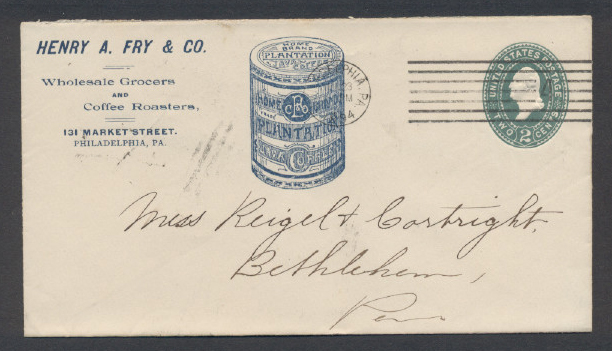 HENRY A. FRY & CO.
Wholesale Grocers
AND
Coffee Roasters,
131 MARKET STREET.
PHILADELPHIA, PA.
HOME
BRAND
PLANTATION
HOME
PLANTATION
PHIA, PA.
UNITED STATES POSTAGE
TWO 2 CENTS
Mess Reigel & Cortright.
Bethlehem,
Pen